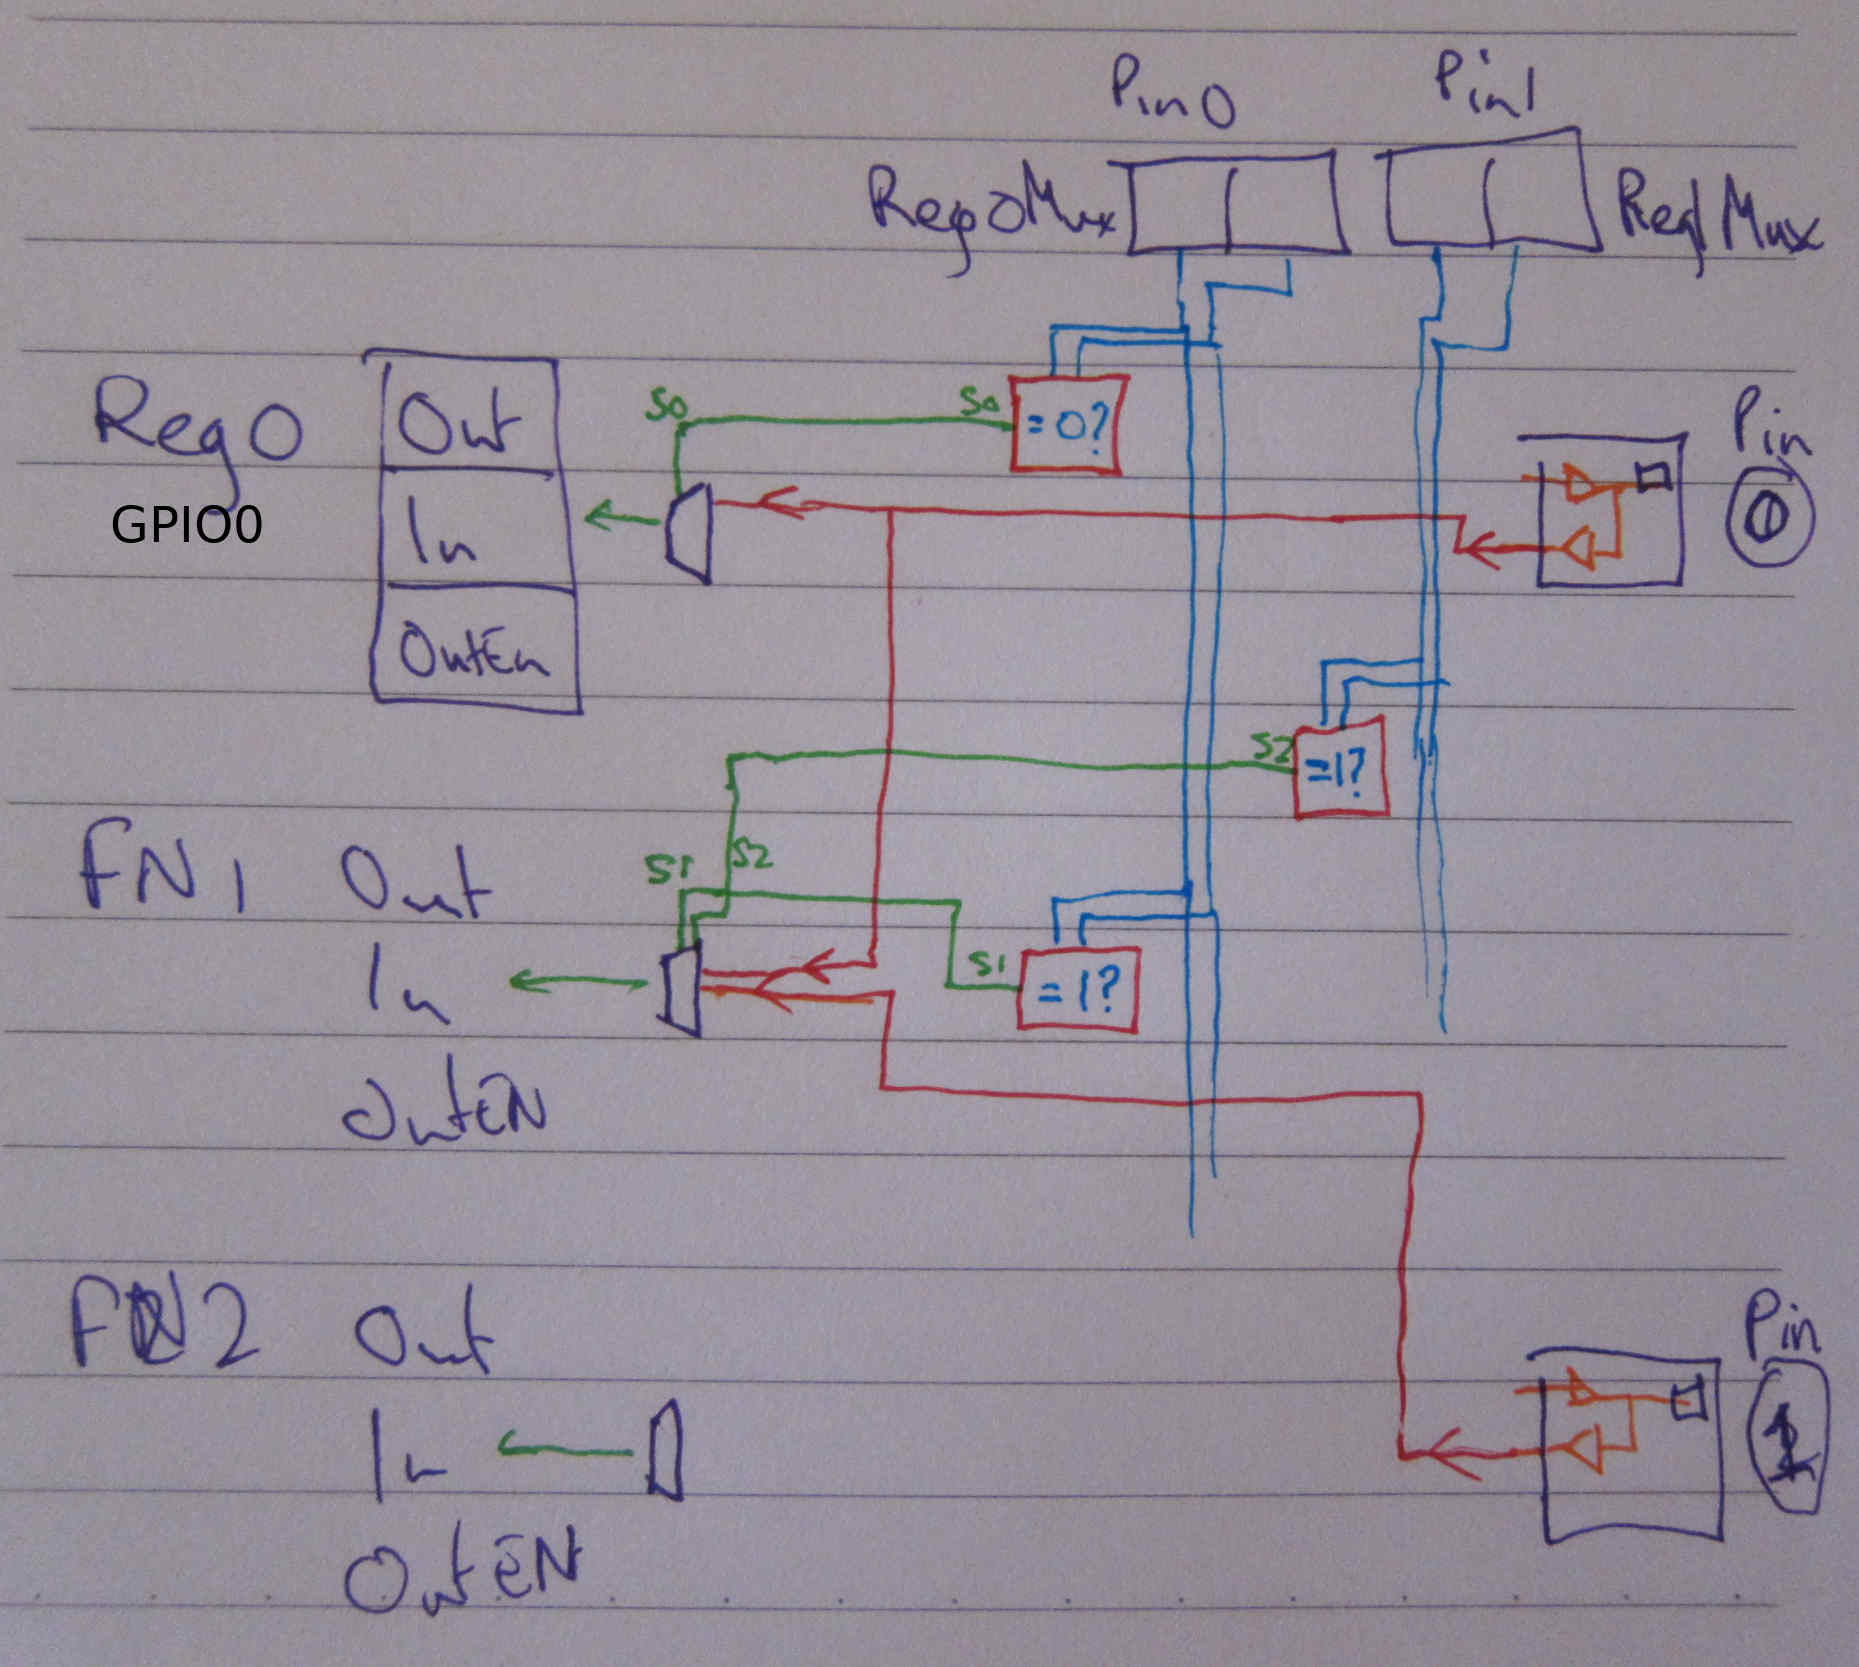 Pin0 Pin1
Reg0Mux Reg1Mux
Reg0 Out S0 S0 =0? Pin
GPIO0 In 0
OutEn
S2 =1?
FN1 Out S1 S2
In S1 =1?
OutEN
FN2 Out Pin
In 1
OutEN